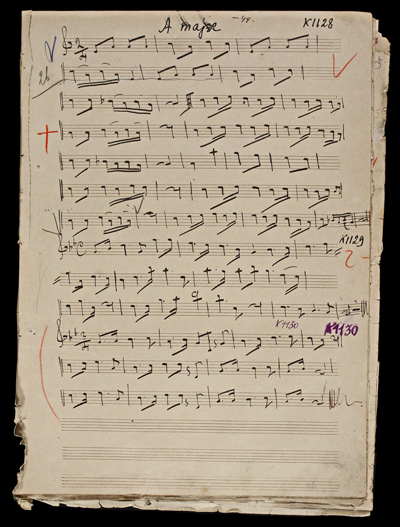 A major K1128
26.
K1129
K1130 K1130